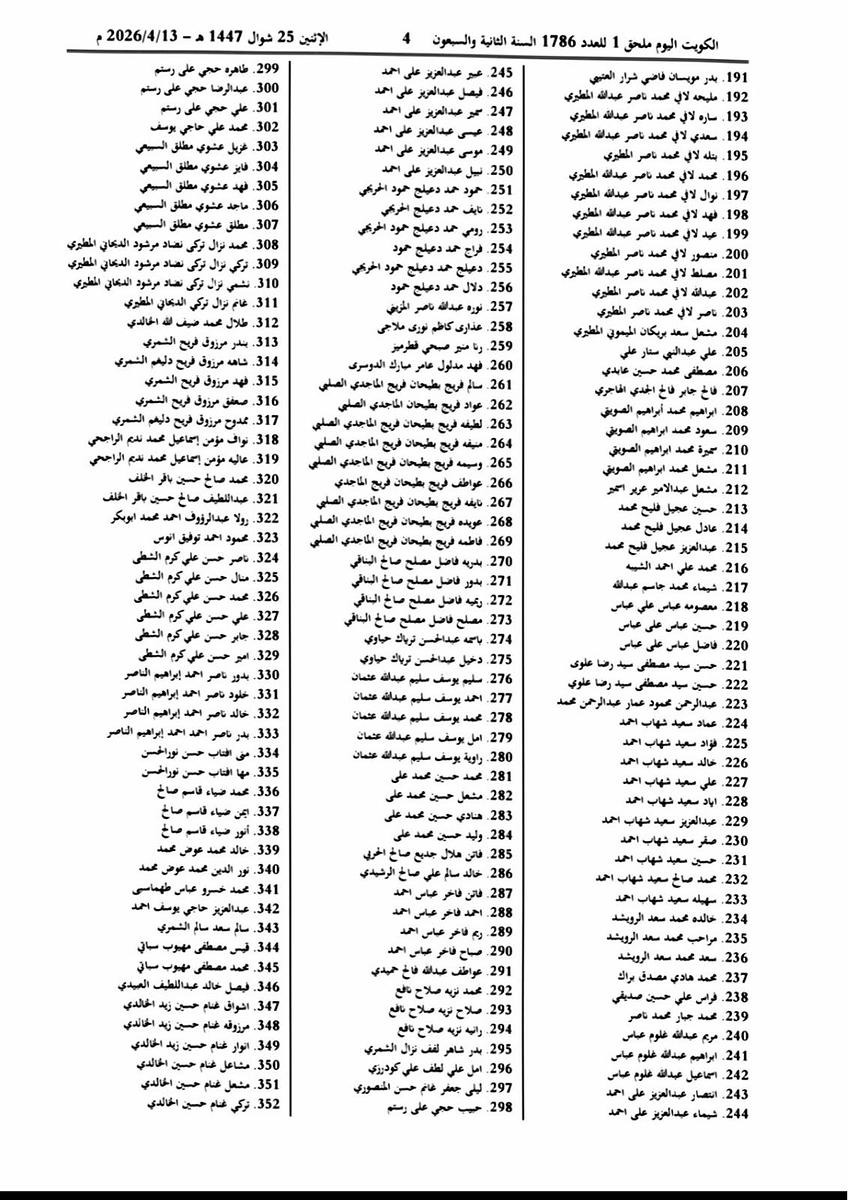 الكويت اليوم ملحق 1 للعدد 1786 السنة الثانية والسبعون 4 الإثنين 25 شوال 1447 هـ – 2026/4/13 م
191. بدر مويسان فاضي شرار العتيبي
192. مليحه لافي محمد ناصر عبدالله المطيري
193. ساره لافي محمد ناصر عبدالله المطيري
194. سعدي لافي محمد ناصر عبدالله المطيري
195. بتله لافي محمد ناصر المطيري
196. محمد لافي محمد ناصر عبدالله المطيري
197. نوال لافي محمد ناصر عبدالله المطيري
198. فهد لافي محمد ناصر عبدالله المطيري
199. عيد لافي محمد ناصر عبدالله المطيري
200. منصور لافي محمد ناصر المطيري
201. مصلط لافي محمد ناصر عبدالله المطيري
202. عبدالله لافي محمد ناصر المطيري
203. ناصر لافي محمد ناصر المطيري
204. مشعل سعد بريكان الميموني المطيري
205. علي عبدالنبي ستار علي
206. مصطفى محمد حسين عابدي
207. فالح جابر فالح الجدي الهاجري
208. ابراهيم محمد أبراهيم الصويتي
209. سعود محمد ابراهيم الصويتي
210. سميرة محمد ابراهيم الصويتي
211. مشعل محمد ابراهيم الصويتي
212. مشعل عبدالامير عرير اسمير
213. حسين عجيل فليح محمد
214. عادل عجيل فليح محمد
215. عبدالعزيز عجيل فليح محمد
216. محمد علي احمد الشيبه
217. شيماء محمد جاسم عبدالله
218. معصومه عباس علي عباس
219. حسين عباس على عباس
220. فاضل عباس على عباس
221. حسن سيد مصطفى سيد رضا علوى
222. حسين سيد مصطفى سيد رضا علوي
223. عبدالرحمن محمود عمار عبدالرحمن محمد
224. عماد سعيد شهاب احمد
225. فؤاد سعيد شهاب احمد
226. خالد سعيد شهاب احمد
227. علي سعيد شهاب احمد
228. اياد سعيد شهاب احمد
229. عبدالعزيز سعيد شهاب أحمد
230. صقر سعيد شهاب احمد
231. حسين سعيد شهاب احمد
232. محمد صالح سعيد شهاب احمد
233. سهيله سعيد شهاب احمد
234. خالده محمد سعد الرويشد
235. مراحب محمد سعد الرويشد
236. سعد محمد سعد الرويشد
237. محمد هادي مصدق براك
238. فراس علي حسين صديقي
239. محمد جبار محمد ناصر
240. مريم عبدالله غلوم عباس
241. ابراهيم عبدالله غلوم عباس
242. اسماعيل عبدالله غلوم عباس
243. انتصار عبدالعزيز على احمد
244. شيماء عبدالعزيز على احمد
245. عبير عبدالعزيز على احمد
246. فيصل عبدالعزيز على احمد
247. سمير عبدالعزيز على احمد
248. عيسى عبدالعزيز على احمد
249. موسى عبدالعزيز على احمد
250. نبيل عبدالعزيز على احمد
251. حمود حمد دعيلج حمود الحريجي
252. نايف حمد دعيلج الحريجي
253. رومي حمد دعيلج حمود الحريجي
254. فراج حمد دعيلج حمود
255. دعيلج حمد دعيلج حمود الحريجي
256. دلال حمد دعيلج حمود
257. نوره عبدالله ناصر المزيني
258. عذارى كاظم نورى ملاجى
259. رنا منير صبحي قطرميز
260. فهد مدلول عامر مبارك الدوسرى
261. سالم فريج بطيحان فريج الماجدي الصلبي
262. عواد فريج بطيحان الماجدي الصلبي
263. لطيفه فريج بطيحان فريج الماجدي الصلبي
264. منيفه فريج بطيحان فريج الماجدي الصلبي
265. وسيمه فريج بطيحان فريج الماجدي الصلبي
266. عواطف فريج بطيحان فريج الماجدي
267. نايفه فريج بطيحان فريج الماجدي الصلبي
268. عويده فريج بطيحان فريج الماجدي الصلبي
269. فاطمه فريج بطيحان فريج الماجدي الصلبي
270. بدريه فاضل مصلح صالح البناقي
271. بدور فاضل مصلح صالح البناقي
272. ريميه فاضل مصلح صالح البناقي
273. مصلح فاضل مصلح صالح البناقي
274. باسمه عبدالحسن ترياك حياوي
275. دخيل عبدالحسن ترياك حياوي
276. سليم يوسف سليم عبدالله عثمان
277. احمد يوسف سليم عبدالله عثمان
278. محمد يوسف سليم عبدالله عثمان
279. امل يوسف سليم عبدالله عثمان
280. راوية يوسف سليم عبدالله عثمان
281. محمد حسين محمد على
282. مشعل حسين محمد على
283. هنادي حسين محمد على
284. وليد حسين محمد على
285. فاتن هلال جديع صالح الحربي
286. خالد سالم علي صالح الرشيدي
287. فاتن فاخر عباس احمد
288. احمد فاخر عباس احمد
289. ريم فاخر عباس احمد
290. صباح فاخر عباس احمد
291. عواطف عبدالله فالح حميدي
292. محمد نزيه صلاح نافع
293. صلاح نزيه صلاح نافع
294. رانيه نزيه صلاح نافع
295. بدر شاهر لفف نزال الشمري
296. امل علي لطف علي كودرزي
297. ليلى جعفر غانم حسن المنصوري
298. حبيب حجي على رستم
299. طاهره حجي على رستم
300. عبدالرضا حجي على رستم
301. علي حجي على رستم
302. محمد علي حاجي يوسف
303. غزيل عشوي مطلق السبيعي
304. فايز عشوي مطلق السبيعي
305. فهد عشوي مطلق السبيعي
306. ماجد عشوي مطلق السبيعي
307. مطلق عشوي مطلق السبيعي
308. محمد نزال تركى نضاد مرشود الديحاني المطيري
309. تركي نزال تركى نضاد مرشود الديحاني المطيري
310. نشمي نزال تركى نضاد مرشود الديحاني المطيري
311. غانم نزال تركي الديحاني المطيري
312. طلال محمد ضيف الله الخالدي
313. بندر مرزوق فريح الشمري
314. شاهه مرزوق فريح دليهم الشمري
315. فهد مرزوق فريح الشمري
316. صعفق مرزوق فريح الشمري
317. ممدوح مرزوق فريح دليهم الشمري
318. نواف مؤمن إسماعيل محمد نديم الراجحي
319. عاليه مؤمن إسماعيل محمد نديم الراجحي
320. محمد صالح حسين باقر الخلف
321. عبداللطيف صالح حسين باقر الخلف
322. رولا عبدالرؤوف احمد محمد ابوبكر
323. محمود احمد توفيق انوس
324. ناصر حسن علي كرم الشطى
325. منال حسن علي كرم الشطى
326. محمد حسن علي كرم الشطى
327. علي حسن علي كرم الشطى
328. جابر حسن علي كرم الشطى
329. امير حسن علي كرم الشطى
330. بدور ناصر احمد إبراهيم الناصر
331. خلود ناصر احمد إبراهيم الناصر
332. خالد ناصر احمد إبراهيم الناصر
333. بدر ناصر احمد احمد إبراهيم الناصر
334. منى افتاب حسن نورالحسن
335. مها افتاب حسن نورالحسن
336. محمد ضياء قاسم صالح
337. ايمن ضياء قاسم صالح
338. أنور ضياء قاسم صالح
339. خالد محمد عوض محمد
340. نور الدين محمد عوض محمد
341. محمد خسرو عباس طهماسبى
342. عبدالعزيز حاجي يوسف احمد
343. سالم سعد سالم الشمري
344. قيس مصطفى مهيوب سباتي
345. محمد مصطفى مهيوب سباتي
346. فيصل خالد عبداللطيف العبيدي
347. اشواق غنام حسين زيد الخالدي
348. مرزوقه غنام حسين زيد الخالدي
349. انوار غنام حسين زيد الخالدي
350. مشاعل غنام حسين الخالدي
351. مشعل غنام حسين الخالدي
352. تركي غنام حسين الخالدي